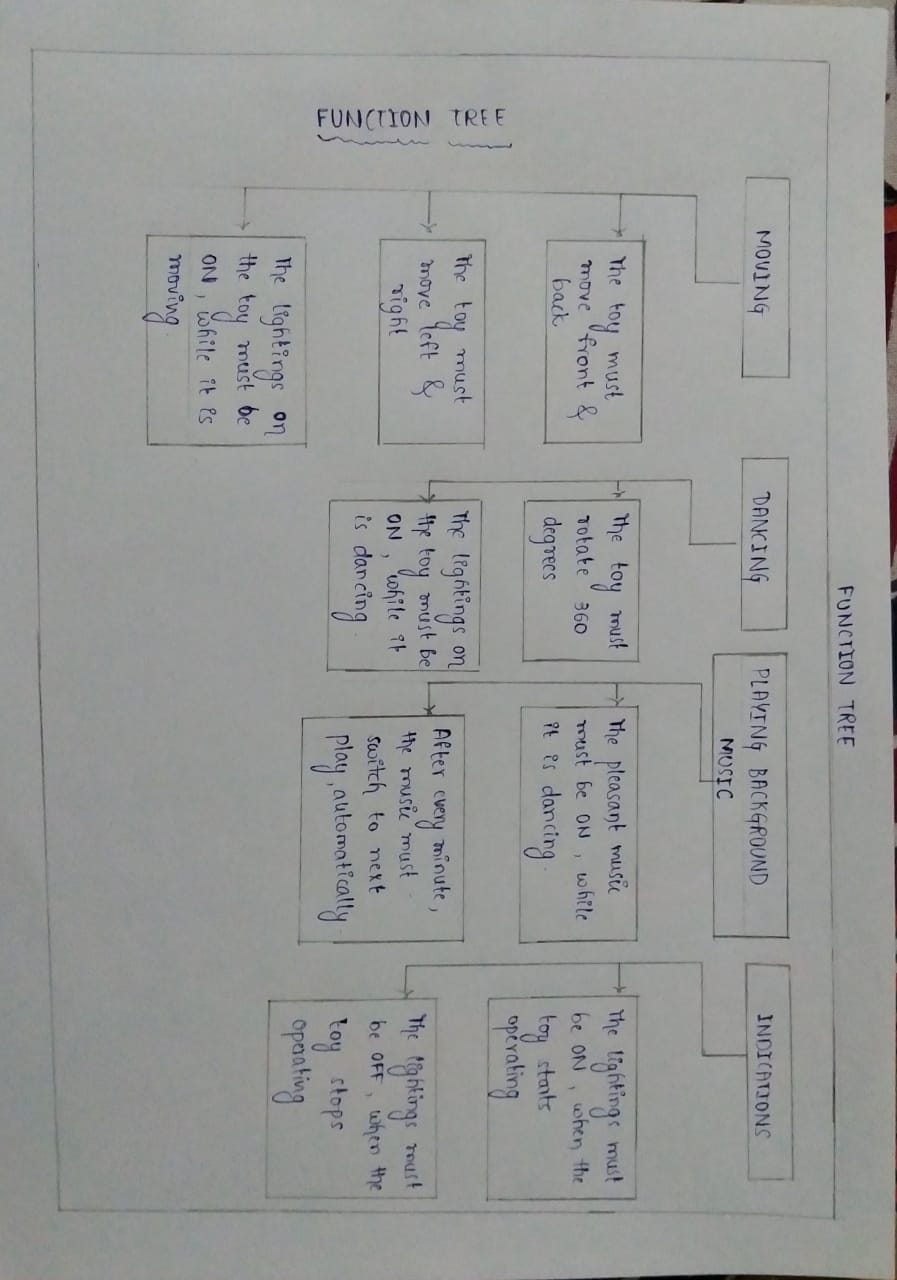 FUNCTION TREE
FUNCTION TREE
MOVING
The toy must
move front &
back
The toy must
move left &
right
The lightings on
the toy must be
ON, while it is
moving.
DANCING
The toy must
rotate 360
degrees
The lightings on
the toy must be
ON, while it
is dancing.
PLAYING BACKGROUND
MUSIC
The pleasant music
must be ON, while
it is dancing.
After every minute,
the music must
switch to next
play, automatically.
INDICATIONS
The lightings must
be ON, when the
toy starts
operating
The lightings must
be OFF, when the
toy stops
operating